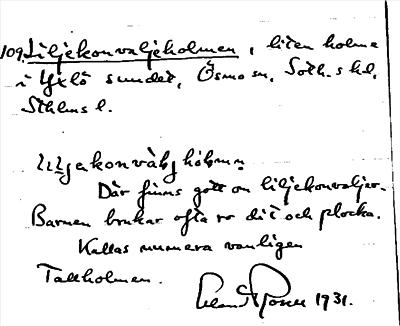 109. Liljekonvaljeholmen, liten holme
i Yxlö sundet, Ösmo sn, Soth. s hd,
Sthlms l.
Där finns gott om liljekonvaljer.
Barnen brukar ofta ro dit och plocka.
Kallas numera vanligen
Tallholmen.
1931.